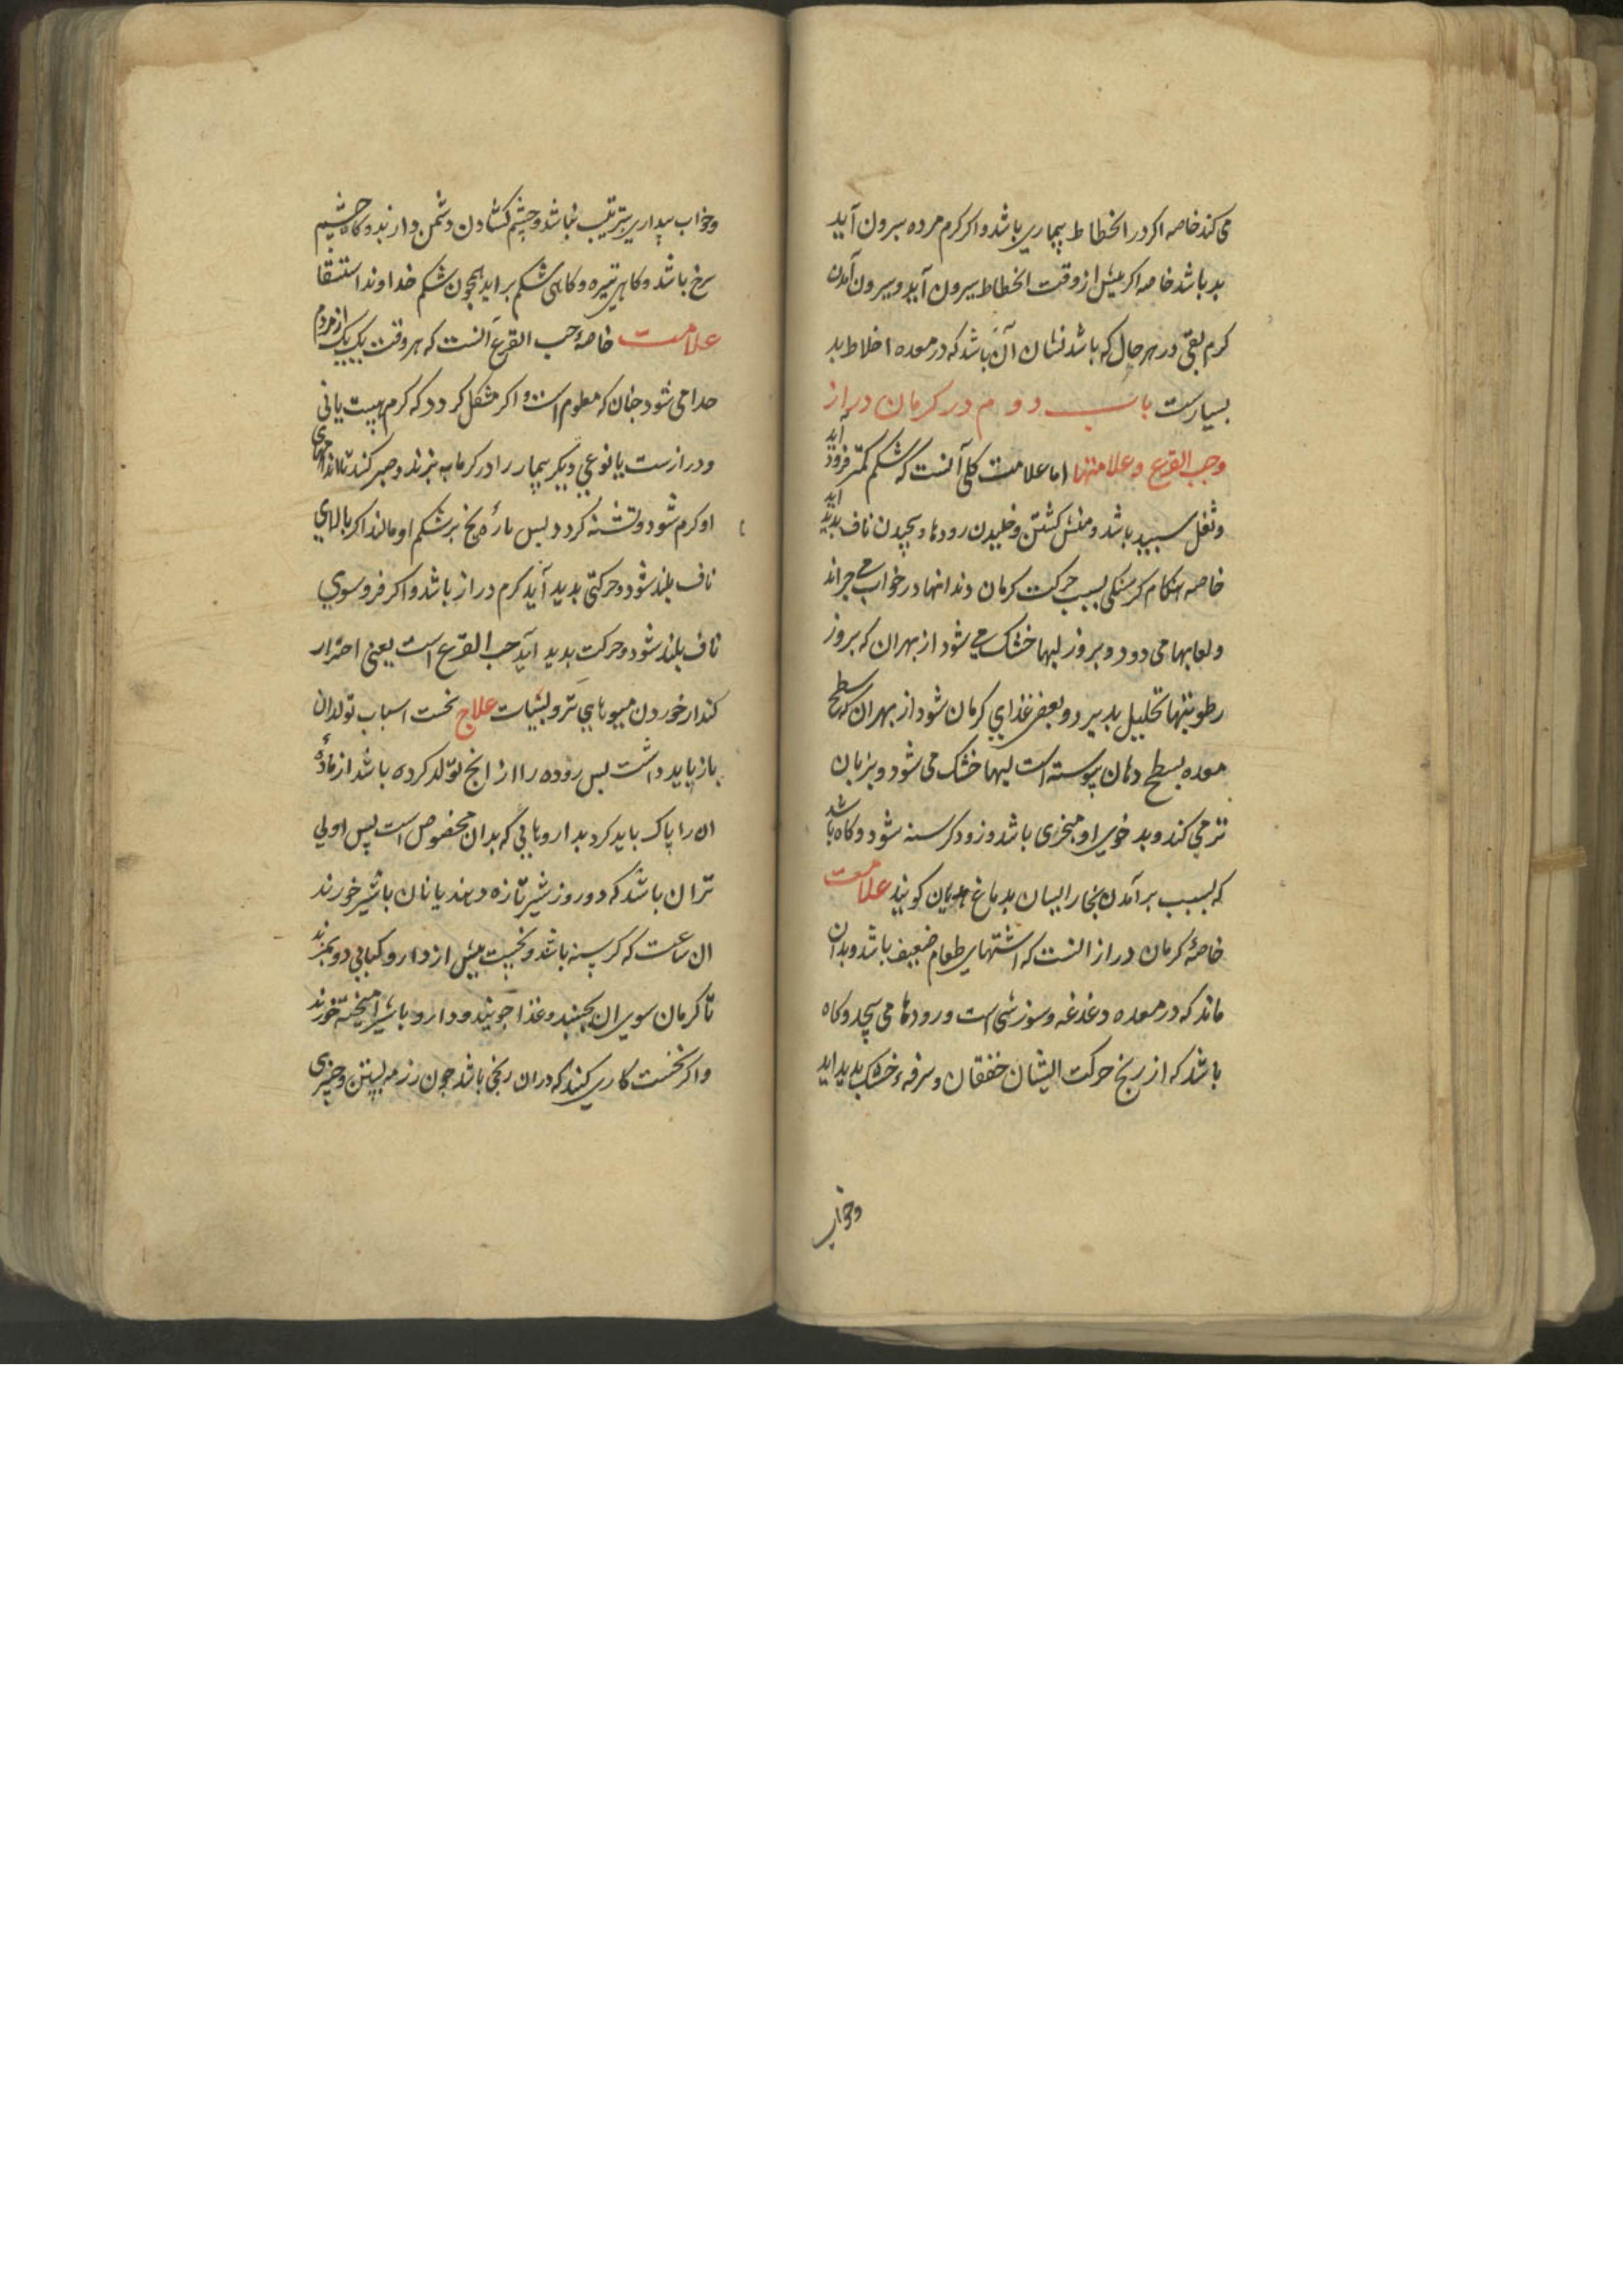 می کند خاصه اکر در انحطاط بیماری باشد و اکر کرم مرده بیرون آید
بد باشد خاصه اکر بیش از وقت انحطاط بیرون آید و بیرون آمدن
کرم بقی در هر حال که باشد نشان آن باشد که در معده اخلاط بد
بسیارست باب دوم در کرمان دراز
وحب القرع و علامتها اما علامت کلی آنست که شکم کمتر فرود آید
و ثفل سبید باشد و منش کشتن و خلیدن رودها و بیچیدن ناف بدید اید
خاصه هنکام کرسنکی بسبب حرکت کرمان دندانها در خواب می
ولعابها می دود و بروز لبها خشک می شود از بهر ان که بروز
رطوبتها تحلیل بدیرد و بعضی غذای کرمان شود از بهر ان که سطح
معده بسطح دهان پیوسته است لبها خشک می شود و بزبان
تر می کند و بد خوی او باشد و زود کرسنه شود و کاه باشد
که بسبب برآمدن بخار ایشان بدماغ هذیان کویند علامت
خاصهٔ کرمان دراز انست که اشتهای طعام ضعیف باشد و بدان
ماند که در معده دغدغه و سوزشی است و رودها می بیچد و کاه
باشد که از رنج حرکت ایشان خفقان و سرفهٔ خشک بدید اید
وخواب
وخواب بیداری بترتیب نباشد و چشم کشادن دشمن دارند و کاه چشم
سرخ باشد و کاهی تیره و کاهی شکم براید همچون شکم خداوند استسقا
علامت خاصهٔ حب القرع آنست که هر وقت یک یک از مردم
جدا می شود جنان که معلوم است و اکر مشکل کردد که کرم
و درازست یا نوعی دیکر بیمار را در کرمابه برند و صبر کنند تا اندامهای
او کرم شود و تشنه کردد بس بارهٔ یخ بر شکم او مالند اکر بالای
ناف بلند شود و حرکتی بدید آید کرم دراز باشد و اکر فروسوی
ناف بلند شود و حرکت بدید آید حب القرع است یعنی احتراز
کند از خوردن میوهای تر و علاج نخست اسباب تولد ان
باز باید داشت بس روده را از انج تولد کرده باشد از مادهٔ
ان را پاک باید کرد بداروهایی که بدان مخصوص است پس اولی
تر ان باشد که دو روز شیر تازه دهند یا نان با شیر خورند
ان ساعت که کرسنه باشد و نخست بیش از دارو کبابی
تا کرمان سوی ان بجنبند و غذا جویند و دارو با شیر امیخته خورند
و اکر نخست کاری کنند که دران رنجی باشد جون و چیزی